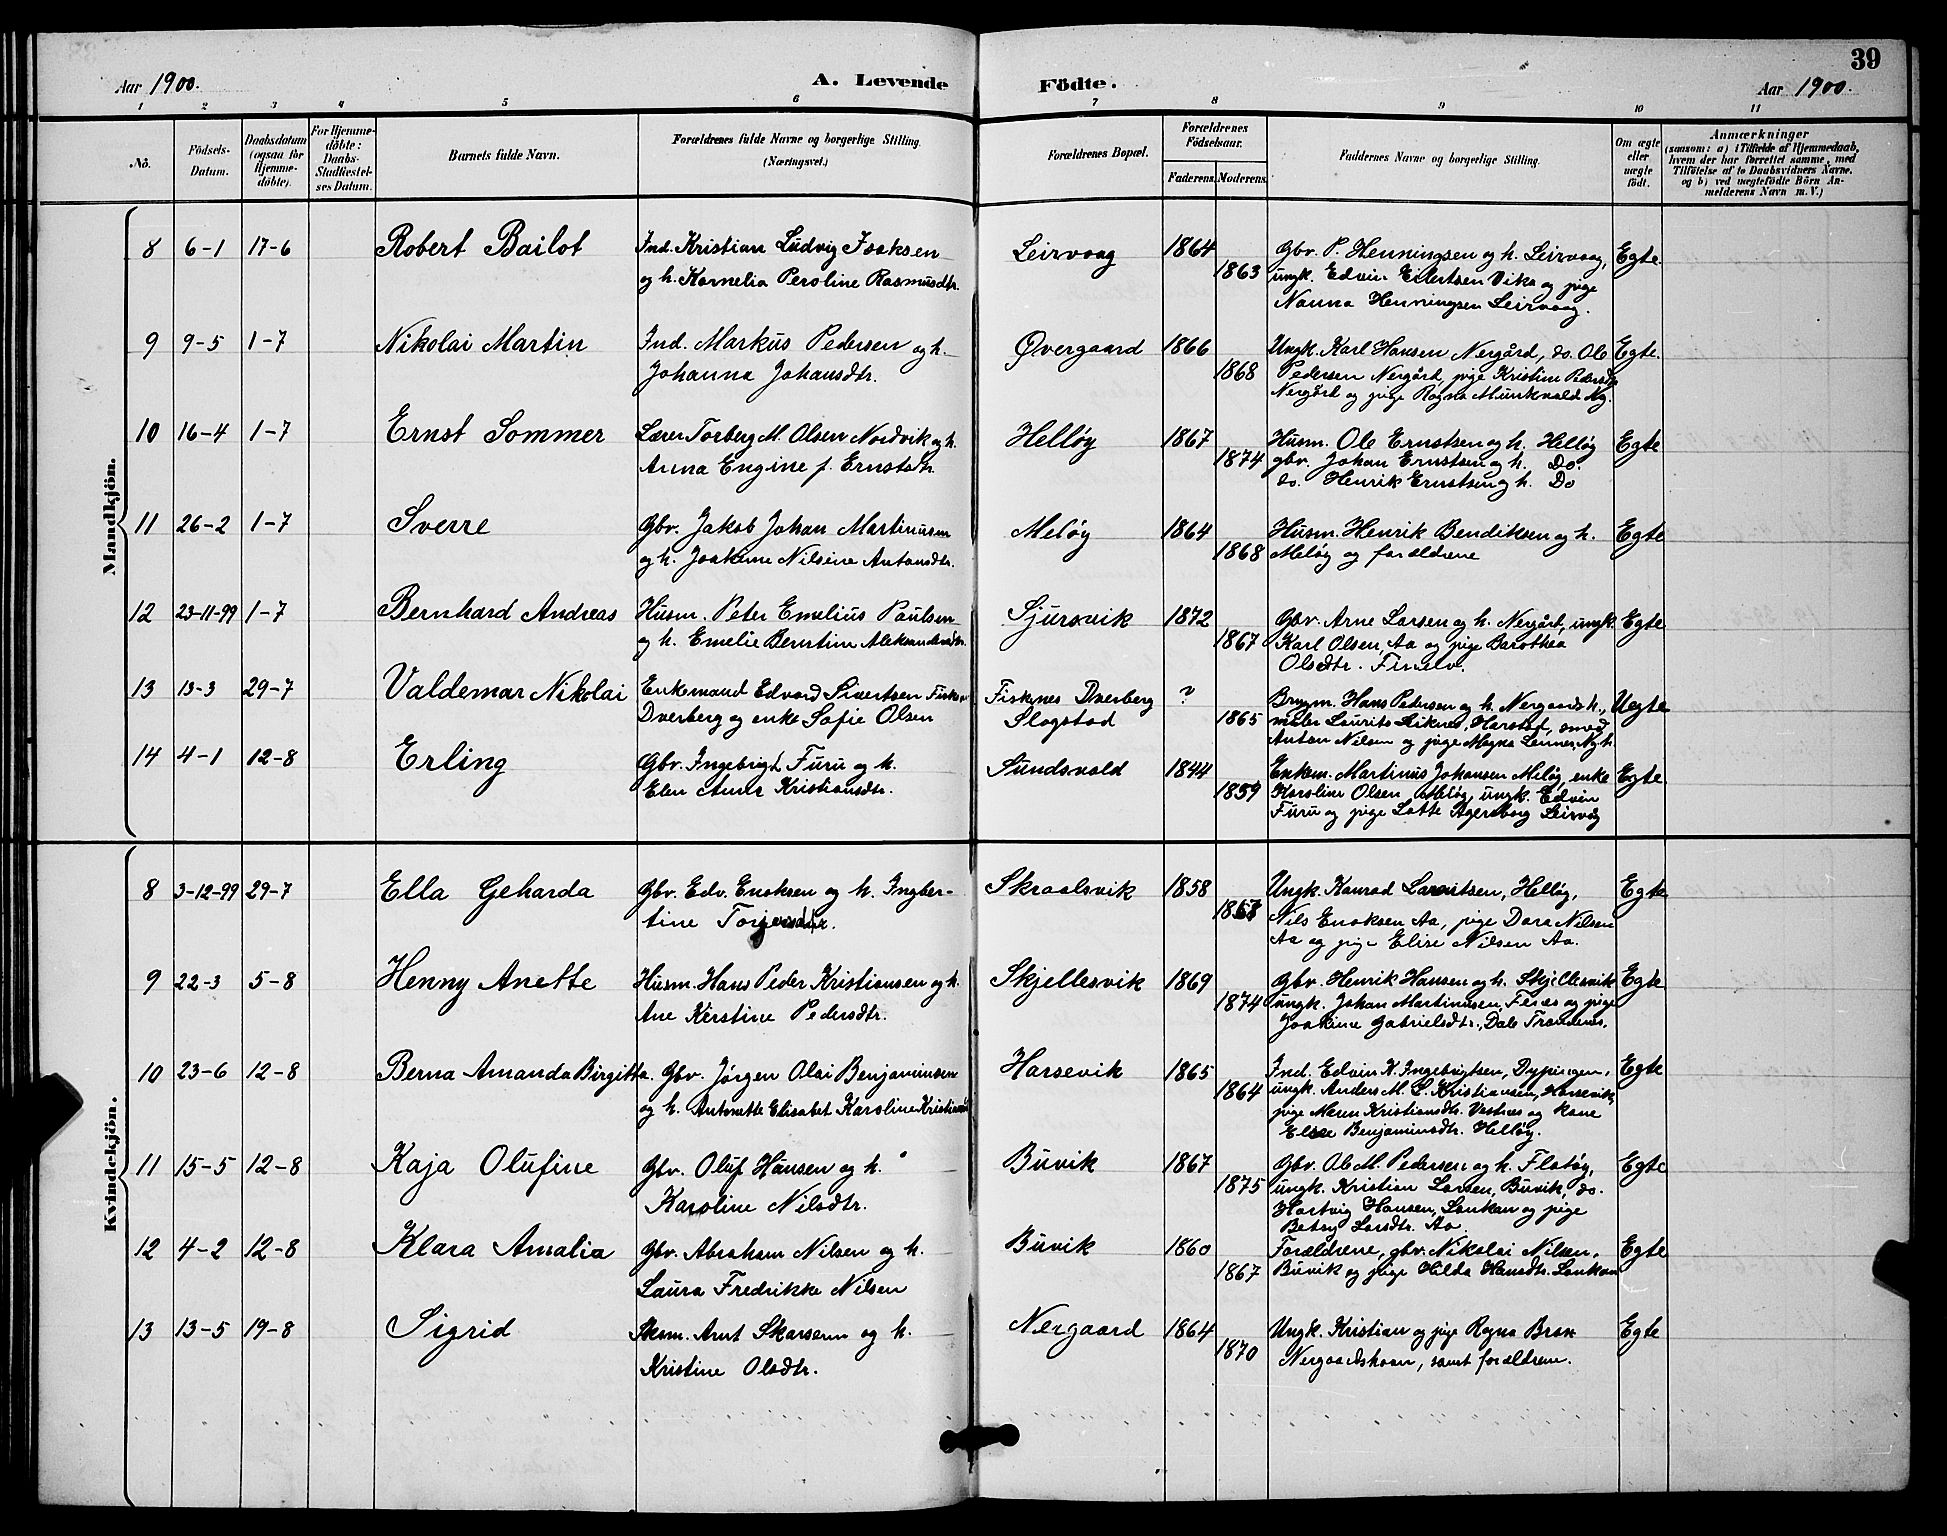 39
Aar 1900.
A. Levende Födte.
Aar 1900.
1 2 3 4 5 6 7 8 9 10 11
No.
Födsels-Datum.
Daabsdatum (ogsaa for Hjemme-döbte).
For Hjemme-döbte: Daabs-Stadfæstel-ses Datum.
Barnets fulde Navn.
Forældrenes fulde Navne og borgerlige Stilling.
(Næringsvei.)
Forældrenes Bopæl.
Forældrenes Födselsaar.
Faderens. Moderens.
Faddernes Navne og borgerlige Stilling.
Om ægte eller uægte födt.
Anmærkninger
(saasom: a) i Tilfælde af Hjemmedaab,
hvem der har forrettet samme, med
Tilföielse af to Daabsvidners Navne.
og b) ved uægtefödte Börn An-
melderens Navn m. V.)
Mandkjön.
8 6-1 17-6 Robert Bailot Ind. Kristian Ludvig Isaksen Leirvaag 1864 Gbr. P. Henningsen og h. Leirvaag, Egte.
og h. Kornelia Peroline Rasmusdtr. 1863 ungk. Edvin Eilertsen Vika og pige
Nanna Henningsen Leirvaag.
9 9-5 1-7 Nikolai Martin Ind. Markus Pedersen og h. Øvergaard 1866 Ungk. Karl Hansen Nergård, do. Ole Egte.
Johanna Johansdtr. 1868 Pedersen Nergård, pige Kristine Pedersdtr
Nergård og pige Ragna Munkvold Ng.
10 16-4 1-7 Ernst Sommer Lærer Torberg M. Olsen Nordvik og h. Helløy 1867 Husm. Ole Ernstsen og h. Helløy Egte
Anna Engine f. Ernstdtr. 1874 gbr. Johan Ernstsen og h. Do.
do. Henrik Ernstsen og h. Do
11 26-2 1-7 Sverre Gbr. Jakob Johan Martinusen Meløy 1864 Husm. Henrik Bendiksen og h. Egte
og h. Joakime Nilsine Antonsdtr. 1868 Meløy og forældrene
12 23-11-99 1-7 Bernhard Andreas Husm. Peter Emelius Paulsen Sjursvik 1872 Gbr. Arne Larsen og h. Nergård, ungk. Egte
og h. Emelie Berntine Aleksandersdtr. 1867 Karl Olsen, Aa og pige Barothea
Olsdtr.
13 13-3 29-7 Valdemar Nikolai Enkemand Edvard Sivertsen Fiskenes Fiskenes Dverberg ? Brugm. Hans Pedersen og h. Nergaardsh., Uegte
Dverberg og enke Sofie Olsen Slogstad 1865 maler Laurits Liknes, Harstad, smed
Anton Nilsen og pige Magna Lennes, N.g.h.
14 4-1 12-8 Erling Gbr. Ingebrigt Furu og h. Sundsvold 1844 Enkem. Martinus Johansen Meløy, enke Egte
Elen Anna Kristiansdtr. 1859 Karoline Olsen Meløy, ungk. Edvin
Furu og pige Lotte Agersborg Leirvåg
Kvindekjön.
8 3-12-99 29-7 Ella Geharda Gbr. Edv. Enoksen og h. Ingber- Skraalsvik 1858 Ungk. Konrad Lauritsen, Helløy, Egte
tine Torjersdtr. Nils Enoksen Aa, pige Dara Nilsen
Aa og pige Elise Nilsen Aa.
9 22-3 5-8 Henny Anette Husm. Hans Peder Kristiansen og h. Skjellesvik 1869 Gbr. Henrik Hansen og h. Skjellesvik Egte
Ane Kirstine Pedersdtr. 1874 ungk. Johan Martinusen, Fenes og pige
Joakine Gabrielsdtr., Dale Trondenes.
10 23-6 12-8 Berna Amanda Birgitta. Gbr. Jørgen Olai Benjaminsen Harsevik 1865 Ind. Edvin K. Ingebrigtsen, Dypingen, Egte
og h. Antonette Elisabet Karoline Kristiansd. 1864 ungk. Anders M. L. Kristiansen, Harsevik,
pige Maren Kristiansdtr. Vestnes og kone
Else Benjaminsdtr. Helløy.
11 15-5 12-8 Kaja Olufine Gbr. Oluf Hansen og h. Buvik 1867 Gbr. Ole M. Pedersen og h. Flatøy, Egte
Karoline Nilsdtr. 1875 ungk. Kristian Larsen, Buvik, do.
Hartvig Hansen, Lonkan og pige
Betsy Larsdtr. Aa.
12 4-2 12-8 Klara Amalia Gbr. Abraham Nilsen og h. Buvik 1860 Forældrene, gbr. Nikolai Nilsen, Egte
Laura Fredrikke Nilsen 1867 Buvik og pige Hilda Hansdtr. Lonkan
13 13-5 19-8 Sigrid Sksm. Arnt Skarsem og h. Nergaard 1864 Ungk. Kristian og pige Ragna Brox Egte
Kristine Olsdtr. 1870 Nergaardshavn, samt forældrene.